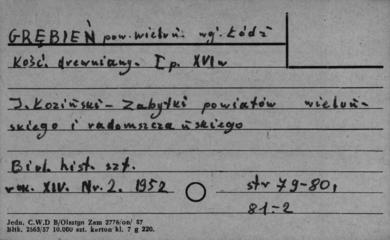 GRĘBIEŃ pow. wieluń. wg. Łódź
Kość. drewniany. I p. XVI w
J. Łoziński - Zabytki powiatów wieluń-
skiego i radomszczańskiego
Biul. hist. szt.
rok. XIV. Nr. 2. 1952 str 79-80,
81-2
Jedn. C.W.D B/Olsztyn Zam 2776/on/ 57
Bltk. 2563/57 10.000 szt. karton kl. 7 g 220.